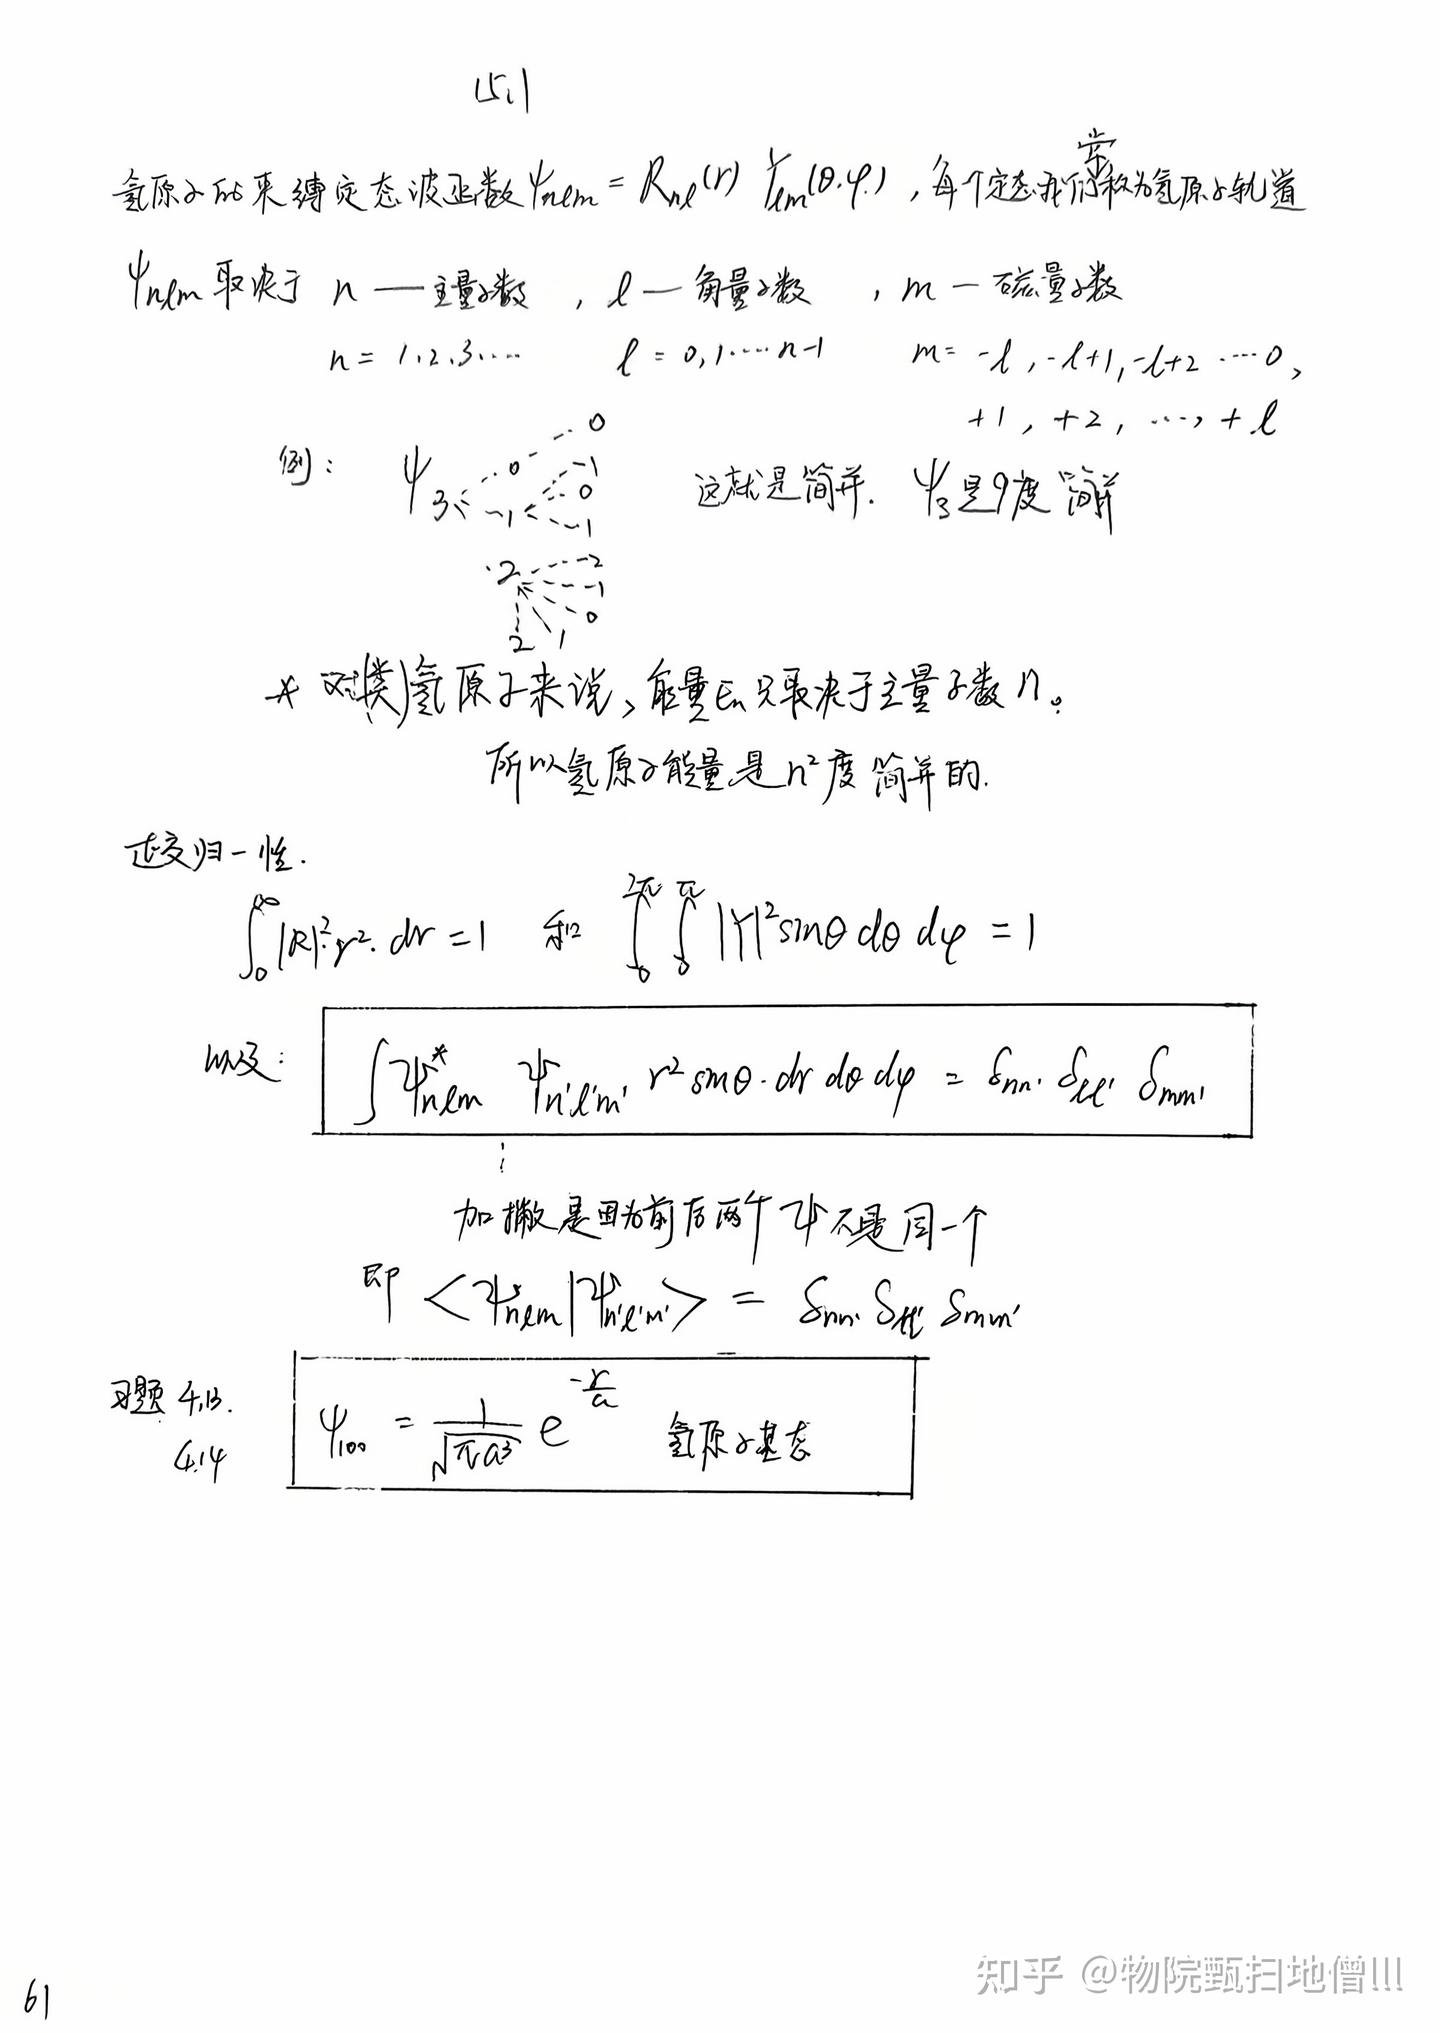 15.1
氢原子的束缚定态波函数ψnlm = Rnl(r) Ylm(θ.φ.)，每个定态我们常称为氢原子轨道
ψnlm 取决于 n — 主量子数 ，l — 角量子数 ，m — 磁量子数
n = 1.2.3.... l = 0,1....n-1 m= -l, -l+1, -l+2 ....0,
+1, +2, ..., +l
例： ψ 3 0 0
1 -1 0 1
2 -2 -1 0 1 2
这就是简并. ψ3是9度简并
* 对(类)氢原子来说，能量En只取决于主量子数n。
所以氢原子能量是n²度简并的.
正交归一性.
∫₀^∞ |R|².r². dr = 1 和 ∫₀^2π ∫₀^π |Y|² sinθ dθ dφ = 1
以及： ∫ψ*nlm ψn'l'm' r² sinθ·dr dθ dφ = δnn' δll' δmm'
加撇是因为前后两个ψ不是同一个
即 <ψnlm|ψn'l'm'> = δnn' δll' δmm'
习题 4.13. ψ100 = 1/√(πa³) e^(-r/a) 氢原子基态
4.14
61
知乎 @物院甄扫地僧lll